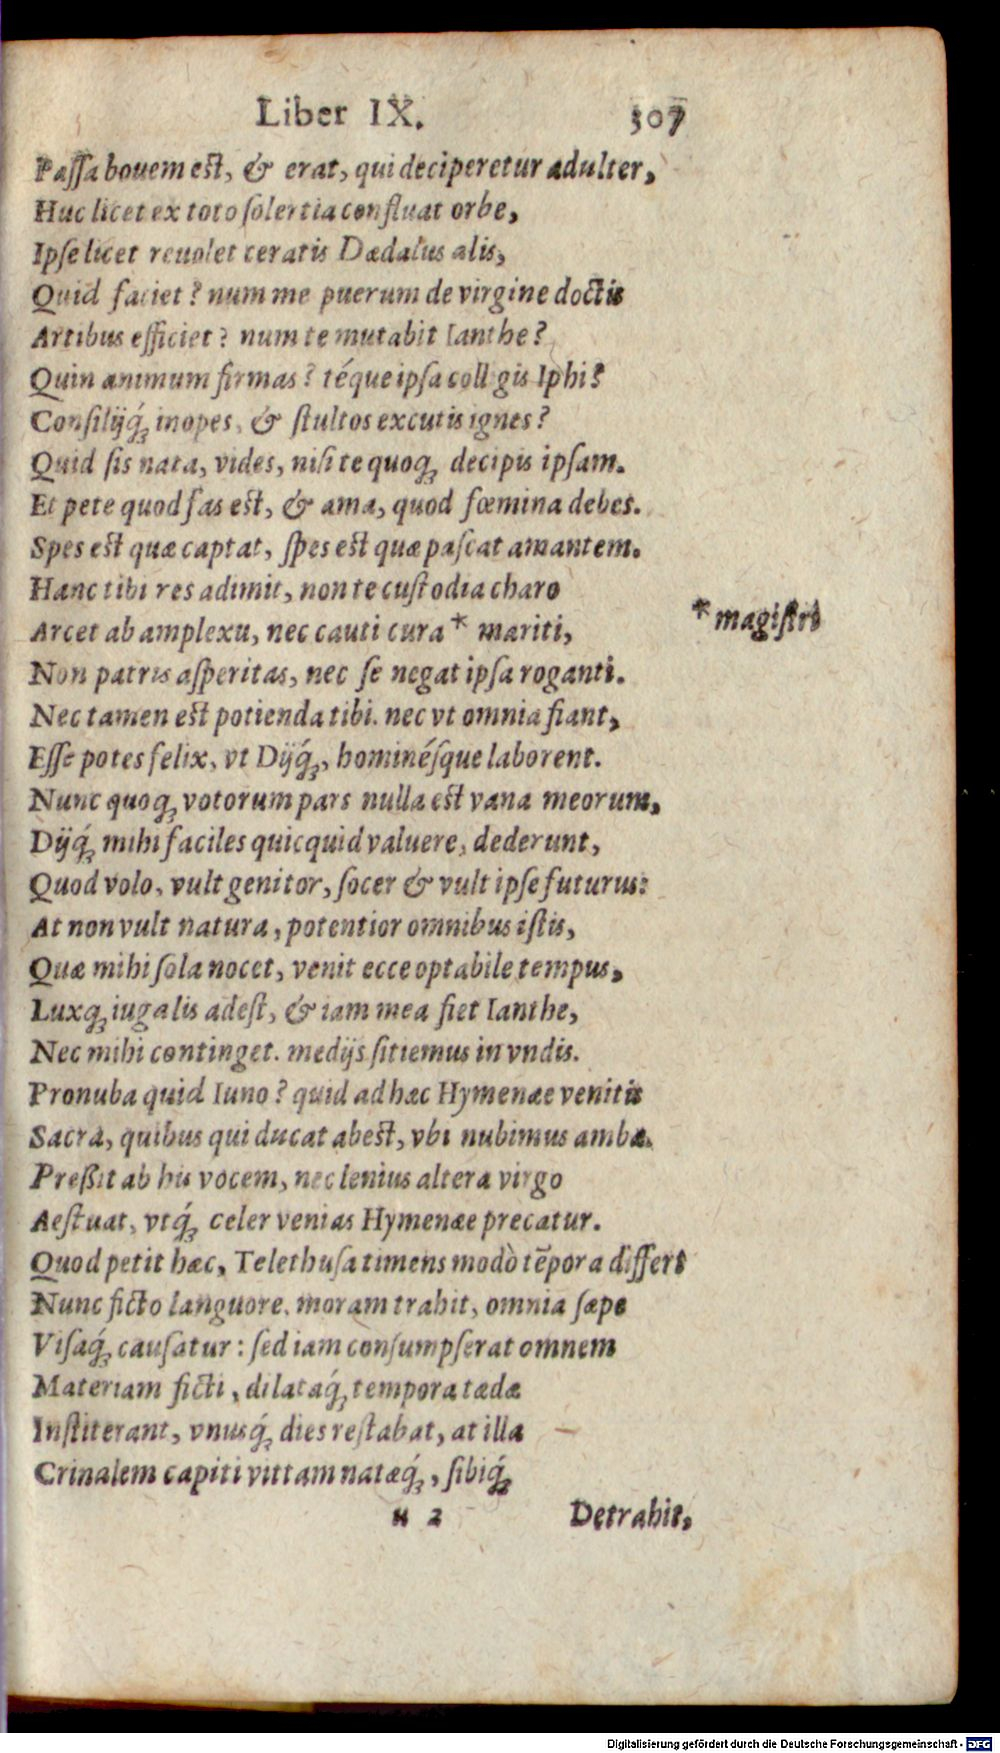 Liber IX. 307
Passa bouem est, & erat, qui deciperetur adulter,
Huc licet ex toto solertia confluat orbe,
Ipse licet reuolet ceratis Dædalus alis,
Quid faciet? num me puerum de virgine doctis
Artibus efficiet? num te mutabit Ianthe?
Quin animum firmas? téque ipsa coll gis Iphi?
Consilijq́; inopes, & stultos excutis ignes?
Quid sis nata, vides, nisi te quoq; decipis ipsam.
Et pete quod fas est, & ama, quod fœmina debes.
Spes est quæ captat, spes est quæ pascat amantem.
Hanc tibi res adimit, non te custodia charo
Arcet ab amplexu, nec cauti cura * mariti,
* magistri
Non patris asperitas, nec se negat ipsa roganti.
Nec tamen est potienda tibi. nec vt omnia fiant,
Esse potes felix, vt Dijq́;, hominésque laborent.
Nunc quoq; votorum pars nulla est vana meorum,
Dijq́; mihi faciles quicquid valuere, dederunt,
Quod volo, vult genitor, socer & vult ipse futurus:
At non vult natura, potentior omnibus istis,
Quæ mihi sola nocet, venit ecce optabile tempus,
Luxq; iugalis adest, & iam mea fiet Ianthe,
Nec mihi continget. medijs sitiemus in vndis.
Pronuba quid Iuno? quid ad hæc Hymenæe venitis
Sacra, quibus qui ducat abest, vbi nubimus ambæ.
Preßit ab his vocem, nec lenius altera virgo
Aestuat, vtq́; celer venias Hymenæe precatur.
Quod petit hæc, Telethusa timens modò tẽpora differt
Nunc ficto languore. moram trahit, omnia sæpe
Visaq́; causatur: sed iam consumpserat omnem
Materiam ficti, dilataq́; tempora tædæ
Institerant, vnusq́; dies restabat, at illa
Crinalem capiti vittam natæq́;, sibiq́;
u 2 Detrahit,
Digitalisierung gefördert durch die Deutsche Forschungsgemeinschaft - DFG